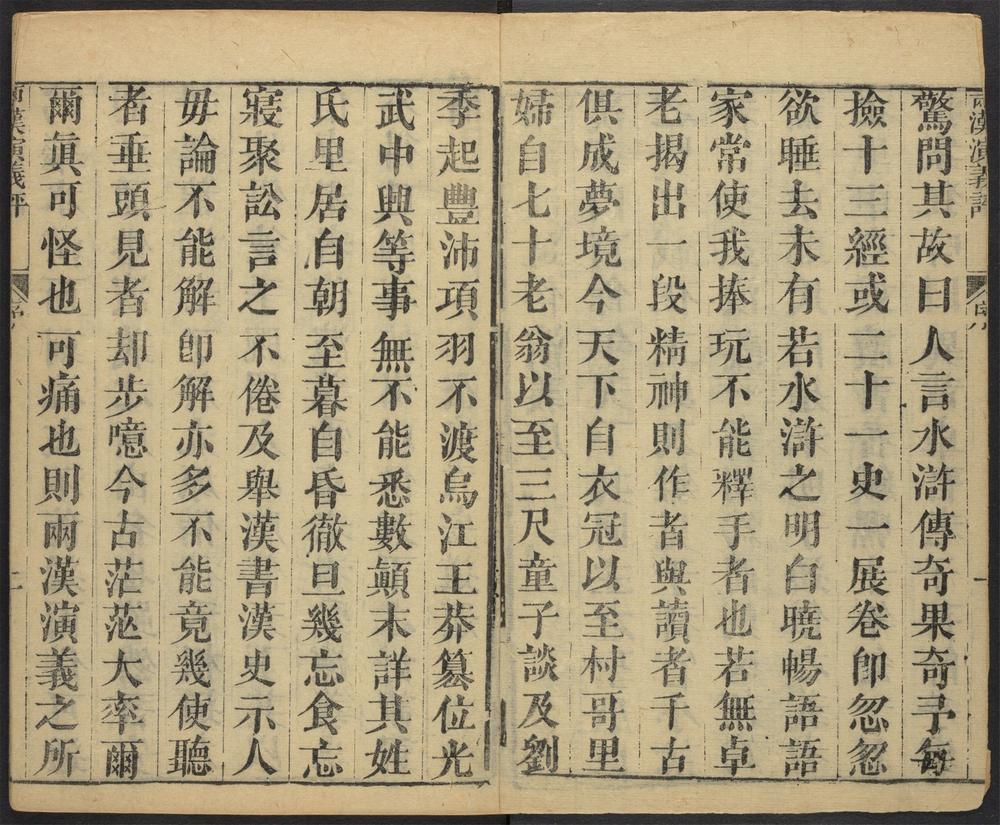 兩漢演義評
序
一
驚問其故曰人言水滸傳奇果奇予每
撿十三經或二十一史一展卷卽忽忽
欲睡去未有若水滸之明白曉暢語語
家常使我捧玩不能釋手者也若無卓
老揭出一段精神則作者與讀者千古
俱成夢境今天下自衣冠以至村哥里
婦自七十老翁以至三尺童子談及劉
季起豐沛項羽不渡烏江王莽篡位光
武中興等事無不能悉數顛末詳其姓
氏里居自朝至暮自昏徹旦幾忘食忘
寢聚訟言之不倦及舉漢書漢史示人
毋論不能解卽解亦多不能竟幾使聽
者垂頭見者却步噫今古茫茫大率爾
爾眞可怪也可痛也則兩漢演義之所
兩漢演義評
序
二